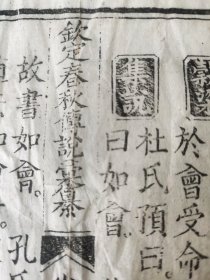 於會受命
集說
杜氏預曰
曰如會。
欽定春秋傳說彙纂
故書如會。孔氏